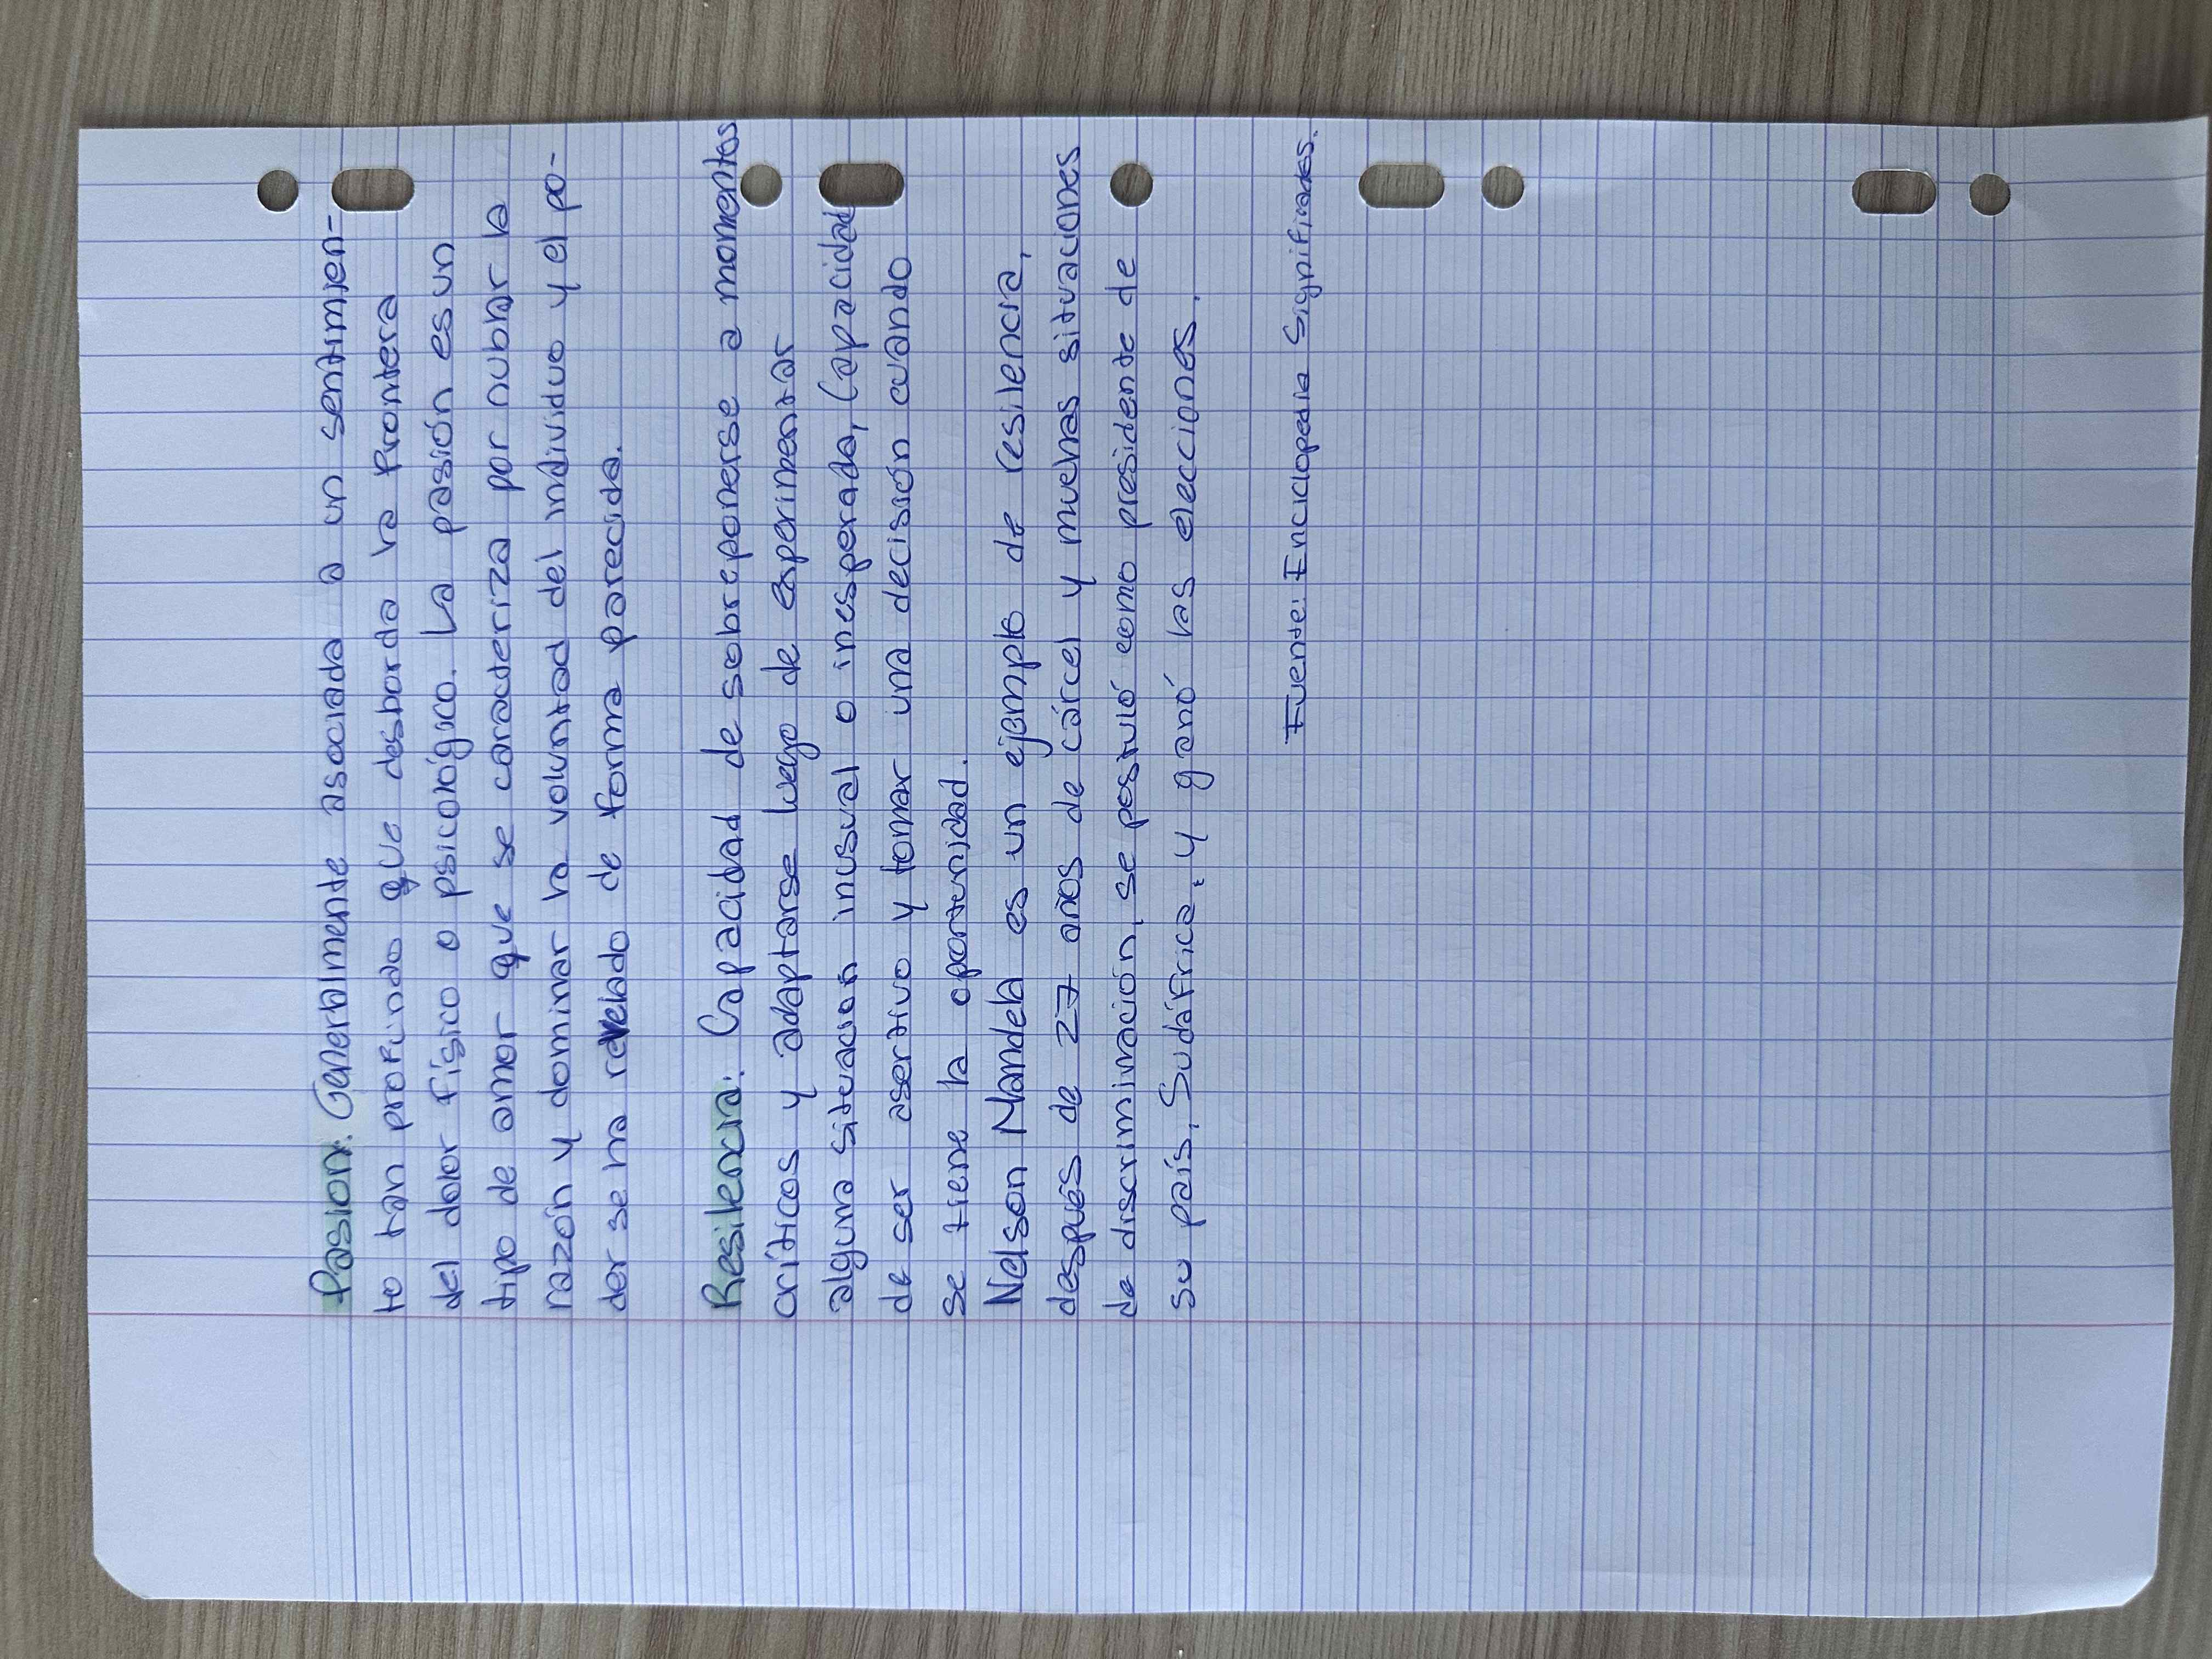 Pasion: Generalmente asociada a un sentimien-
to tan profundo que desborda la frontera
del dolor físico o psicológico. La pasión es un
tipo de amor que se caracteriza por nublar la
razón y dominar la voluntad del individuo y el po-
der se ha revelado de forma parecida.
Resilencia: Capacidad de sobreponerse a momentos
críticos y adaptarse luego de experimentar
alguna situacion inusual o inesperada, Capacidad
de ser asertivo y tomar una decisión cuando
se tiene la oportunidad.
Nelson Mandela es un ejemplo de resilencia,
después de 27 años de cárcel y muchas situaciones
de discriminación, se postuló como presidente de
su país, Sudáfrica, y ganó las elecciones.
Fuente: Enciclopedia Significados.